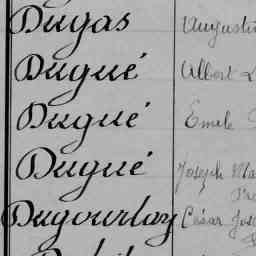 Dugas Augustin
Dugué Albert L
Dugué Emile
Dugué Joseph Ma
Dugourlay César Jos